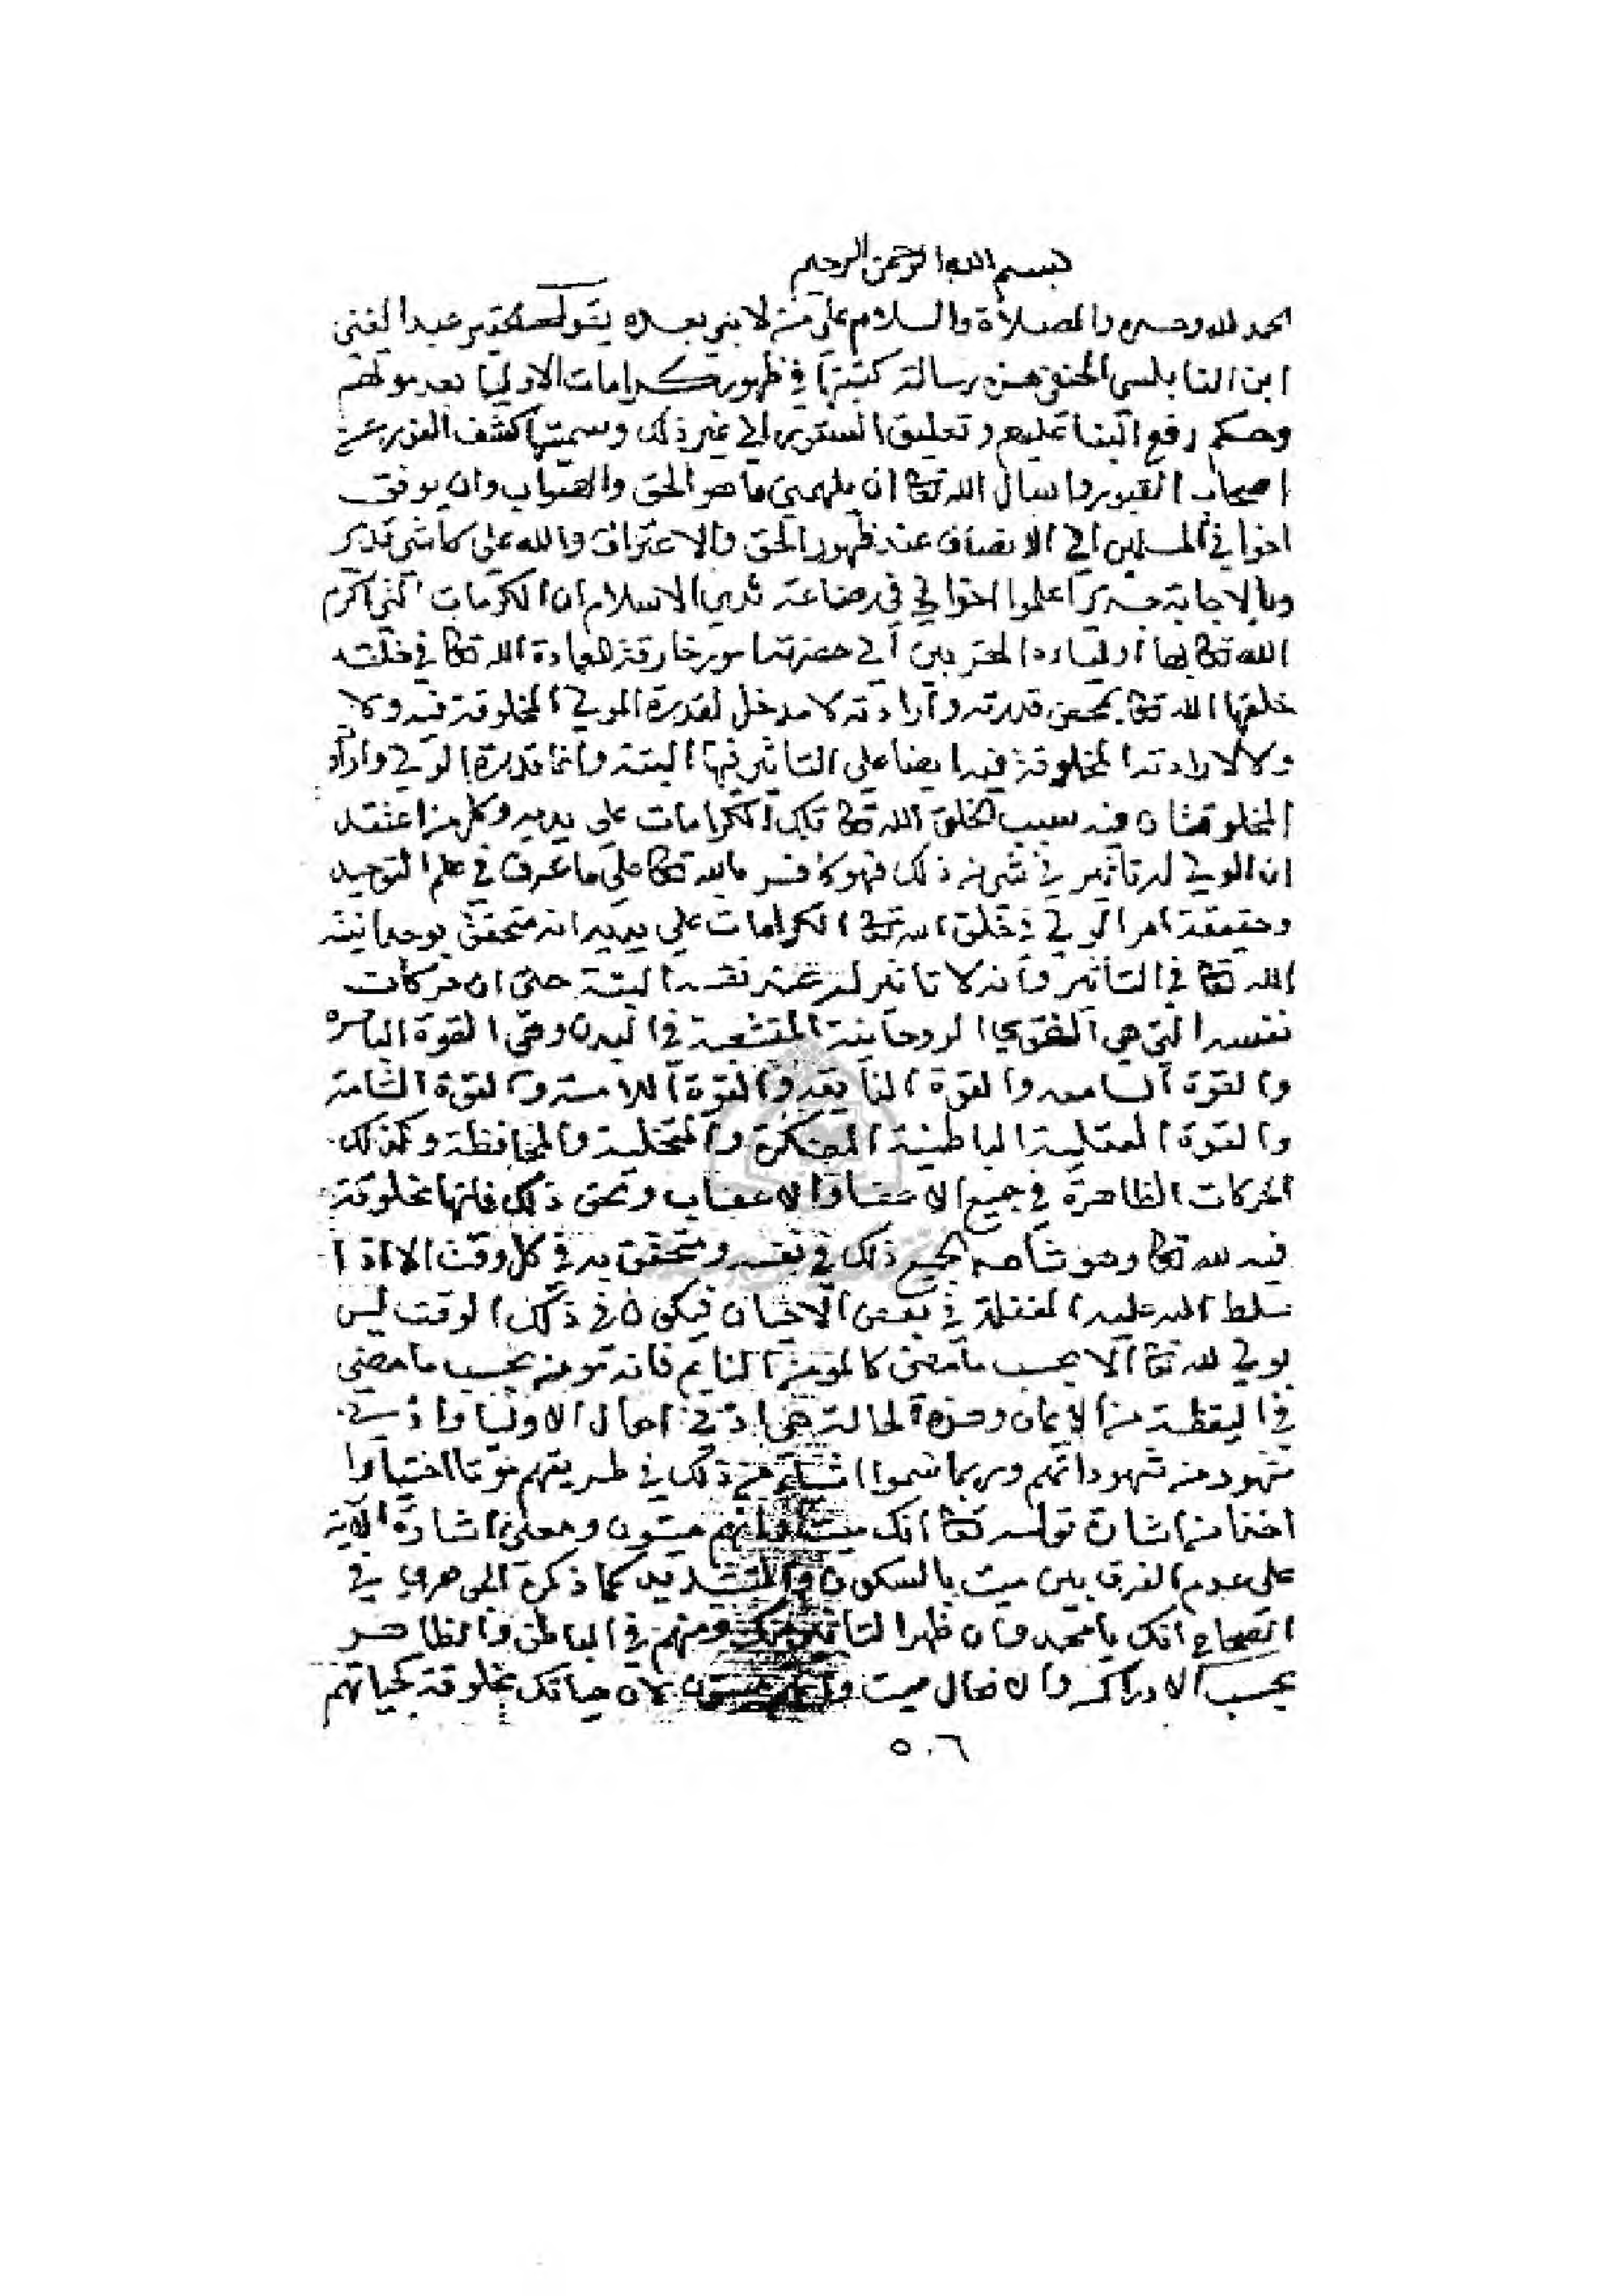 بسم الله الرحمن الرحيم
الحمد لله وحده والصلاة والسلام على من لا نبي بعده يقول الحقير عبد الغني
ابن النابلسي الحنفي هذه رسالة كتبتها في ظهور كرامات الاوليا بعد موتهم
وحكم رفع البنا عليهم وتعليق الستور الي غير ذلك وسميتها كشف النور عن
اصحاب القبور واسال الله تعا ان يلهمني ما هو الحق والصواب وان يوفق
اخواني المسلمين الي الانصاف عند ظهور الحق والاعتراف والله علي كل شي قدير
وبالاجابة جدير اعلموا اخواني في رضاعة ثدي الاسلام ان الكرامات التي اكرم
الله تعا بها اولياءه المقربين الي حضرته امور خارقة للعادة الله تعا في خلقه
خلقها الله تعا بمحض قدرته وارادته لا مدخل لقدرة الولي المخلوقة فيه ولا
ولا لارادته المخلوقة فيه ايضا علي التاثير فيها البتة وانما قدرة الولي وارادة
المخلوقتان فيه سبب لخلق الله تعا تلك الكرامات علي يديه وكل من اعتقد
ان الولي له تاثير في شي من ذلك فهو كافر بالله تعا علي ما عرف في علم التوحيد
وحقيقة امر الولي في خلق الله تعا الكرامات علي يديه انه متحقق بوحدانية
الله تعا في التاثير وانه لا تاثير له عند نفسه البتة حتي ان حركات
نفسه التي هي القوي الروحانية المنتشعبة في البدن وهي القوة الباصره
والقوة السامعه والقوة الذايقه والقوة اللامسه والقوة الشامة
والقوة العقلية الباطنية المفكرة والمتخيلة والحافظة وكذلك
الحركات الظاهرة في جميع الاعضا والاعصاب ونحو ذلك فانها مخلوقة
فيه لله تعا وهو شاهد لجميع ذلك في نفسه ومتحقق به في كل وقت الا اذا
سلط الله عليه الغفلة في بعض الاحيان فيكون في ذلك الوقت ليس
بولي لله تعا الا بحسب ما مضي كالمؤمن النايم فانه مومن بحسب ما مضي
في اليقظة من الايمان وهذه الحالة هي ادني احوال الاوليا وادني
شهود من شهوداتهم وربما سموا ذلك في طريقهم موتا اختياريا
اخذا من اشارة قوله تعا انك ميت وانهم ميتون ومعني اشارة الاية
علي عدم الفرق بين ميت بالسكون والتشديد كما ذكره الجوهري في
الصحاح انك يا محمد وان ظهر التاثير منك ومنهم في الباطن والظاهر
بحسب الادراك والافعال ميت وانهم ميتون لان حياتك مخلوقة كحياتهم
٥٠٦